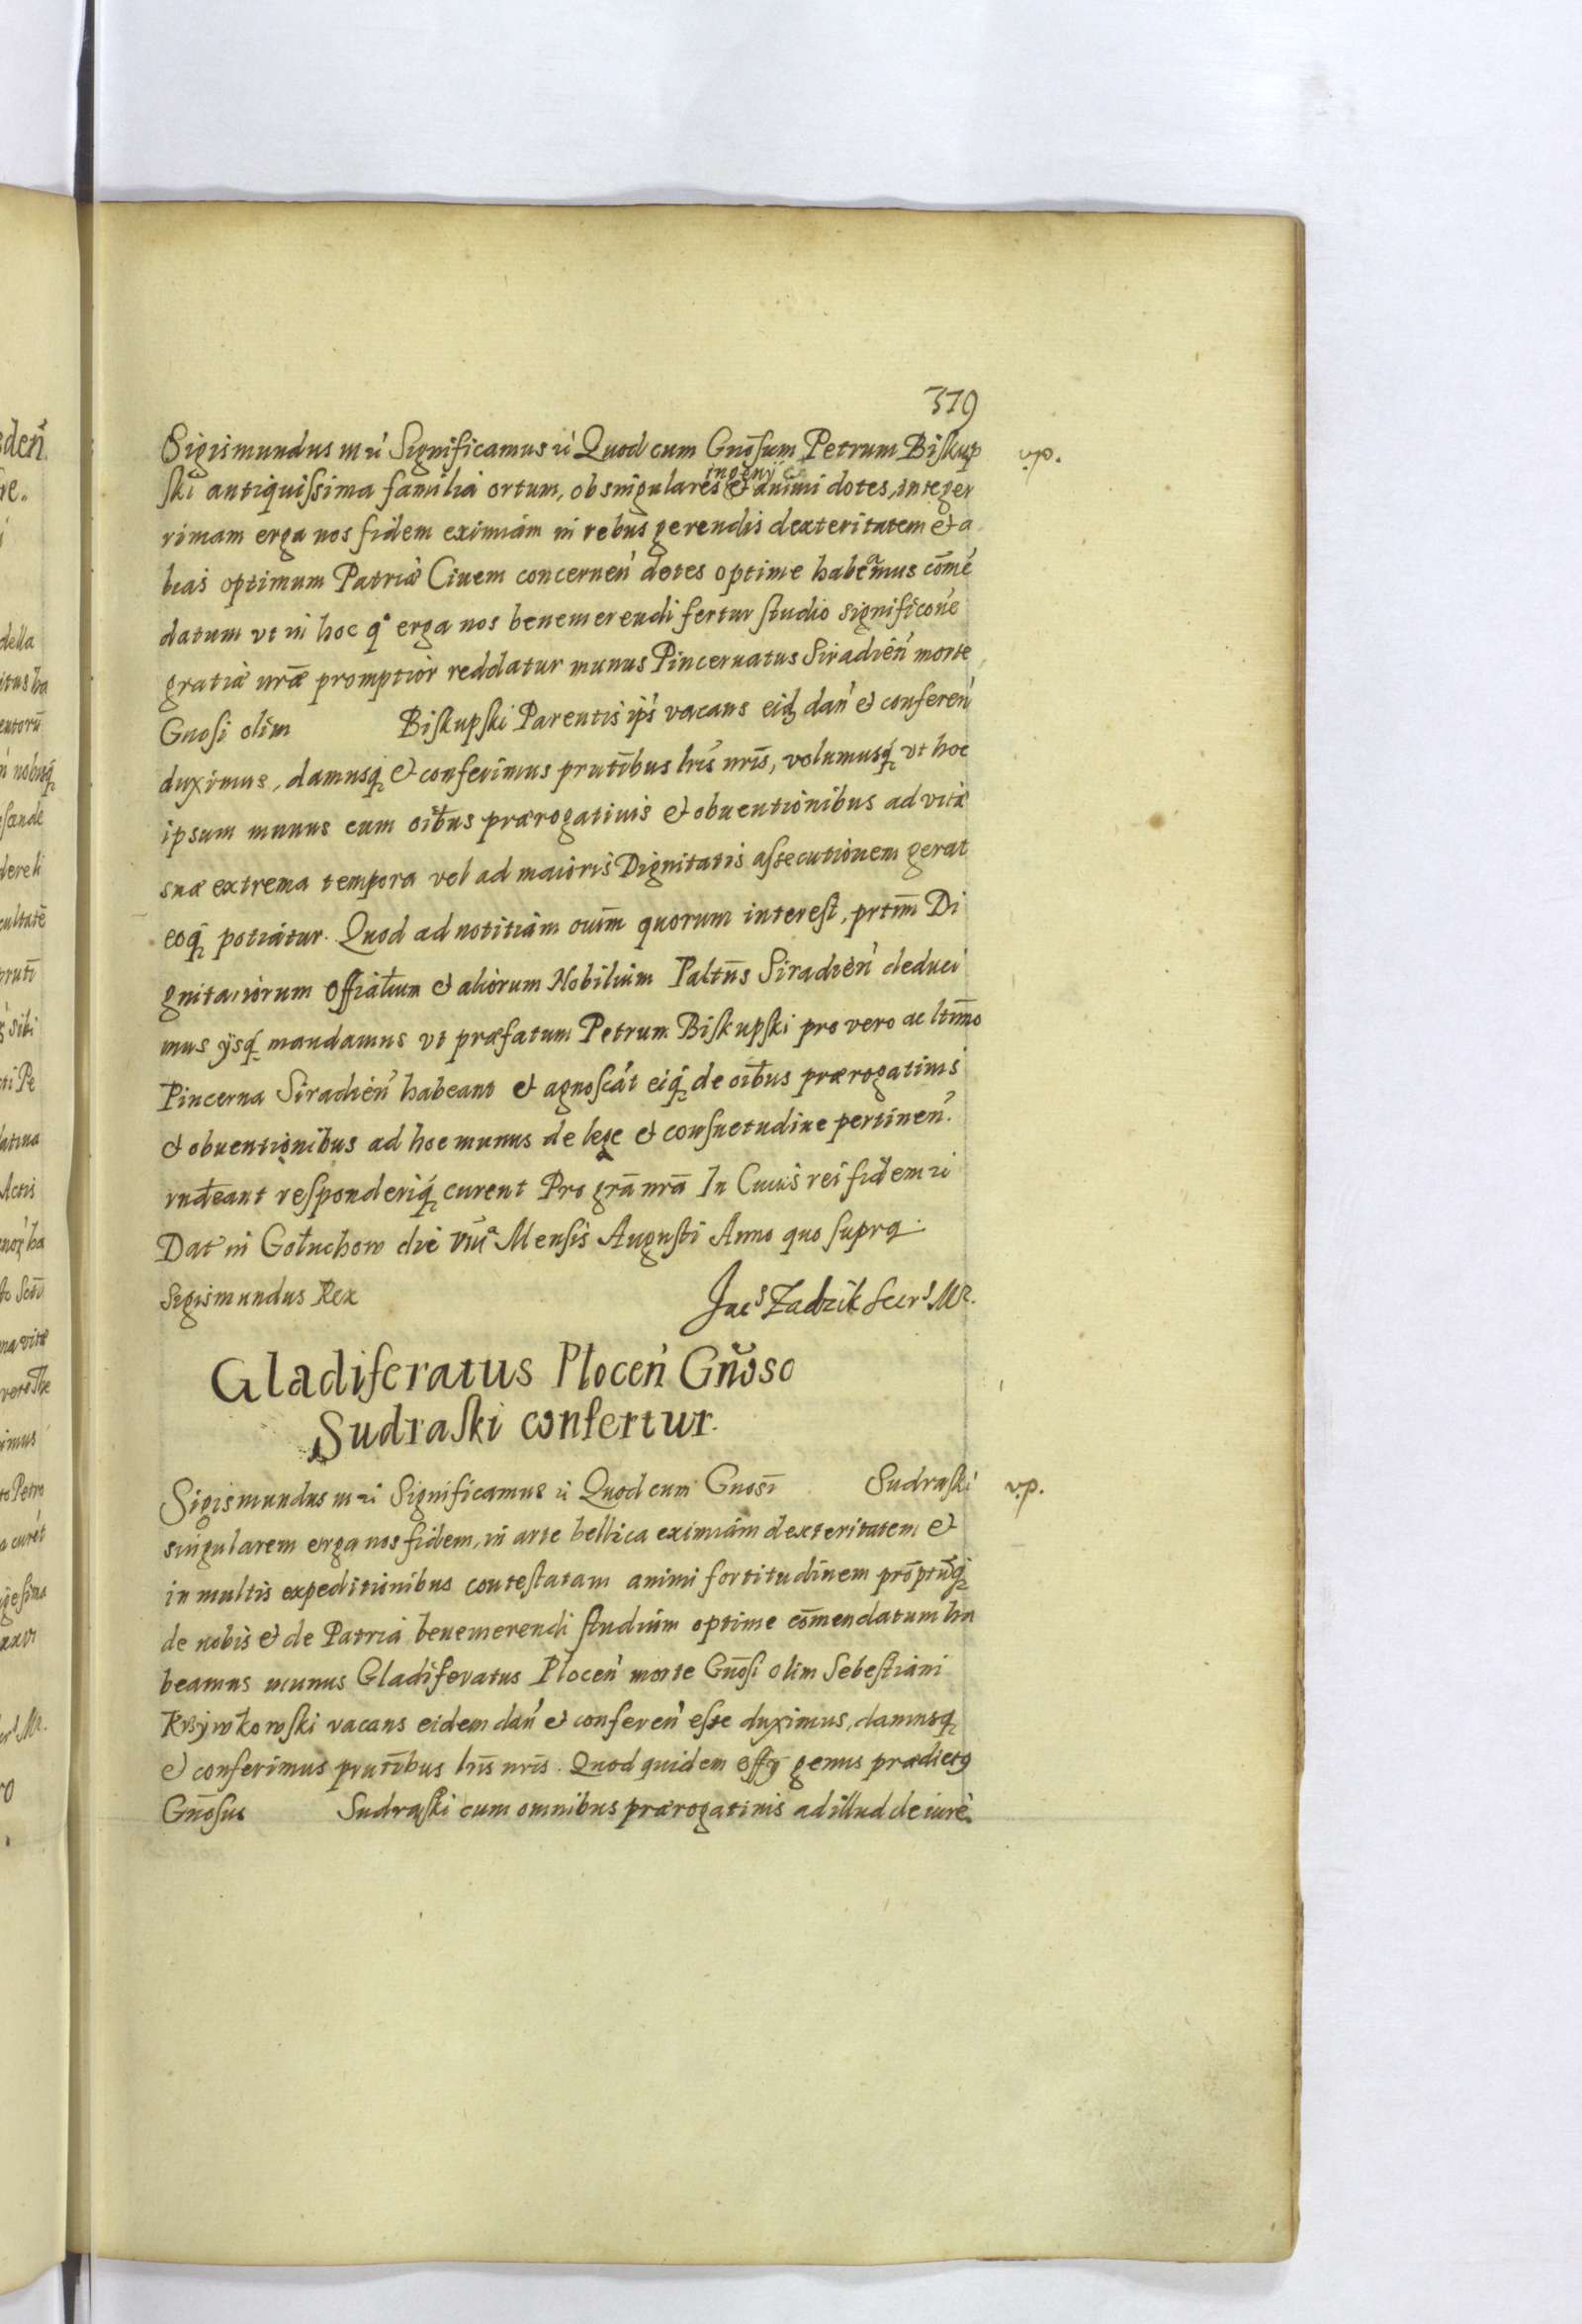 379
Sigismundus III &c Significamus &c Quod cum Gnōsum Petrum Biskup v.p.
ski antiquissima familia ortum, ob singulares ingenij & animi dotes, integer
rimam erga nos fidem eximiam in rebus gerendis dexteritatem & a
lias optimum Patriæ Ciuem concernen̄ dotes optime habeamus cōmē
datum vt in hoc q° erga nos benemerendi fertur studio significōne
gratiæ nr̄æ promptior reddatur munus Pincernatus Siradień morte
Gnosi olim Biskupski Parentis ip̄s vacans eid̨ dań & conferen̄
duximus, damusq̨ & conferimus prnt̄ibus lr̄is nr̄is, volumusq̨ vt hoc
ipsum munus cum oībus prærogatiuis & obuentionibus ad vitæ
suæ extrema tempora vel ad maioris Dignitatis assecutionem gerat
eoq̨ potiatur. Quod ad notitiam ouīm quorum interest, prtīm Di
gnitariorum Offialium & aliorum Nobilium Paltn̄s Siradień deduci
mus ijsq̨ mandamus vt præfatum Petrum Biskupski pro vero ac ltīmo
Pincerna Siradień habeant & agnoscāt eiq̨ de oībus prærogatiuis
& obuentionibus ad hoc munus de lege & consuetudine pertinen̄.
rndeant responderiq̨ curent Pro grā nrā In Cuius rei fidem &c
Dat in Gołuchow die VIIIª Mensis Augusti Anno quo supra.
Sigismundus Rex Jacs Zadzik Secrs MR.
Gladiferatus Plocen̄ Gn̄oso
Sudraski confertur.
Sigismundus III &c Significamus &c Quod cum Gnosī Sudraski v.p.
singularem erga nos fidem, in arte bellica eximiam dexteritatem &
in multis expeditionibus contestatam animi fortitudinem prōptūq̨
de nobis & de Patria benemerendi studium optime cōmendatum ha
beamus munus Gladiferatus Plocen̄ morte Gn̄osi olim Sebestiani
Krzywkowski vacans eidem dań & conferen̄ esse duximus, damusq̨
& conferimus prntībus lr̄is nr̄is. Quod quidem offỹ genus prædictꝰ
Gn̄osus Sudraski cum omnibus prærogatiuis ad illud de iure